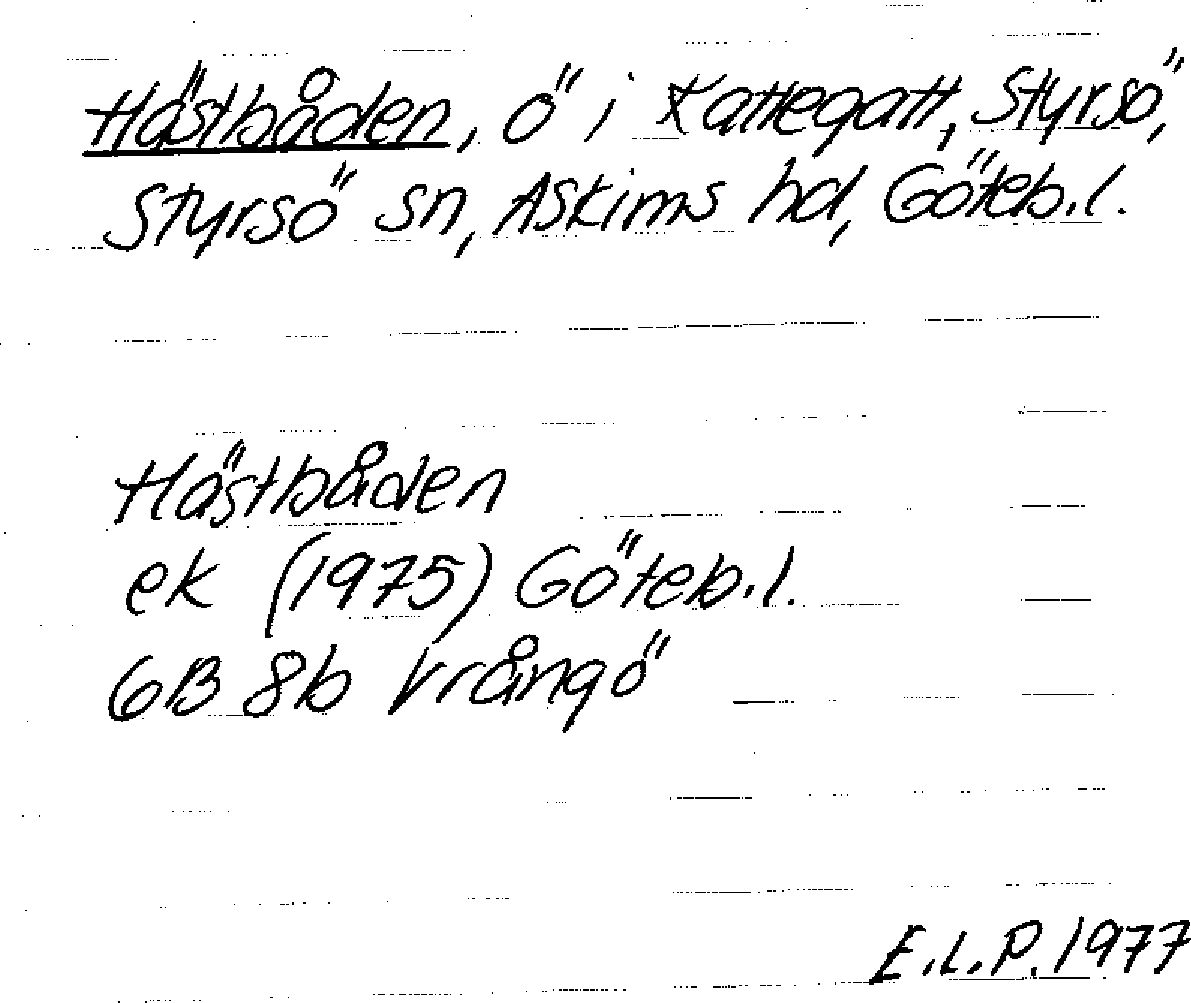 Hästbåden, ö i Kattegatt, Styrsö,
Styrsö sn, Askims hd, Göteb.l.
Hästbåden
ek (1975) Göteb.l.
6B 8b Vrångö
E.L.P. 1977